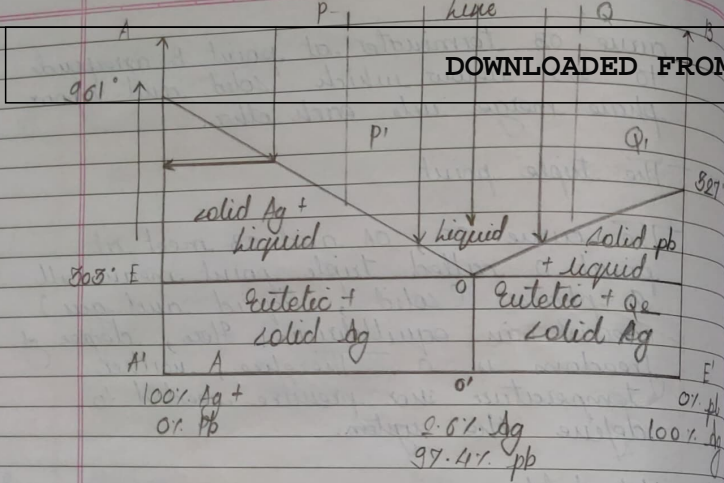 P
Line
Q
A
B
DOWNLOADED FROM
961°
P'
Q1
327
solid Ag +
Liquid
Liquid
solid pb
+ liquid
303° E
O
Eutetic +
solid Ag
Eutetic + Q2
solid Ag
A' A
O'
E'
100% Ag +
0% Pb
2.6% Ag
97.4% pb
0% pb
100% Ag